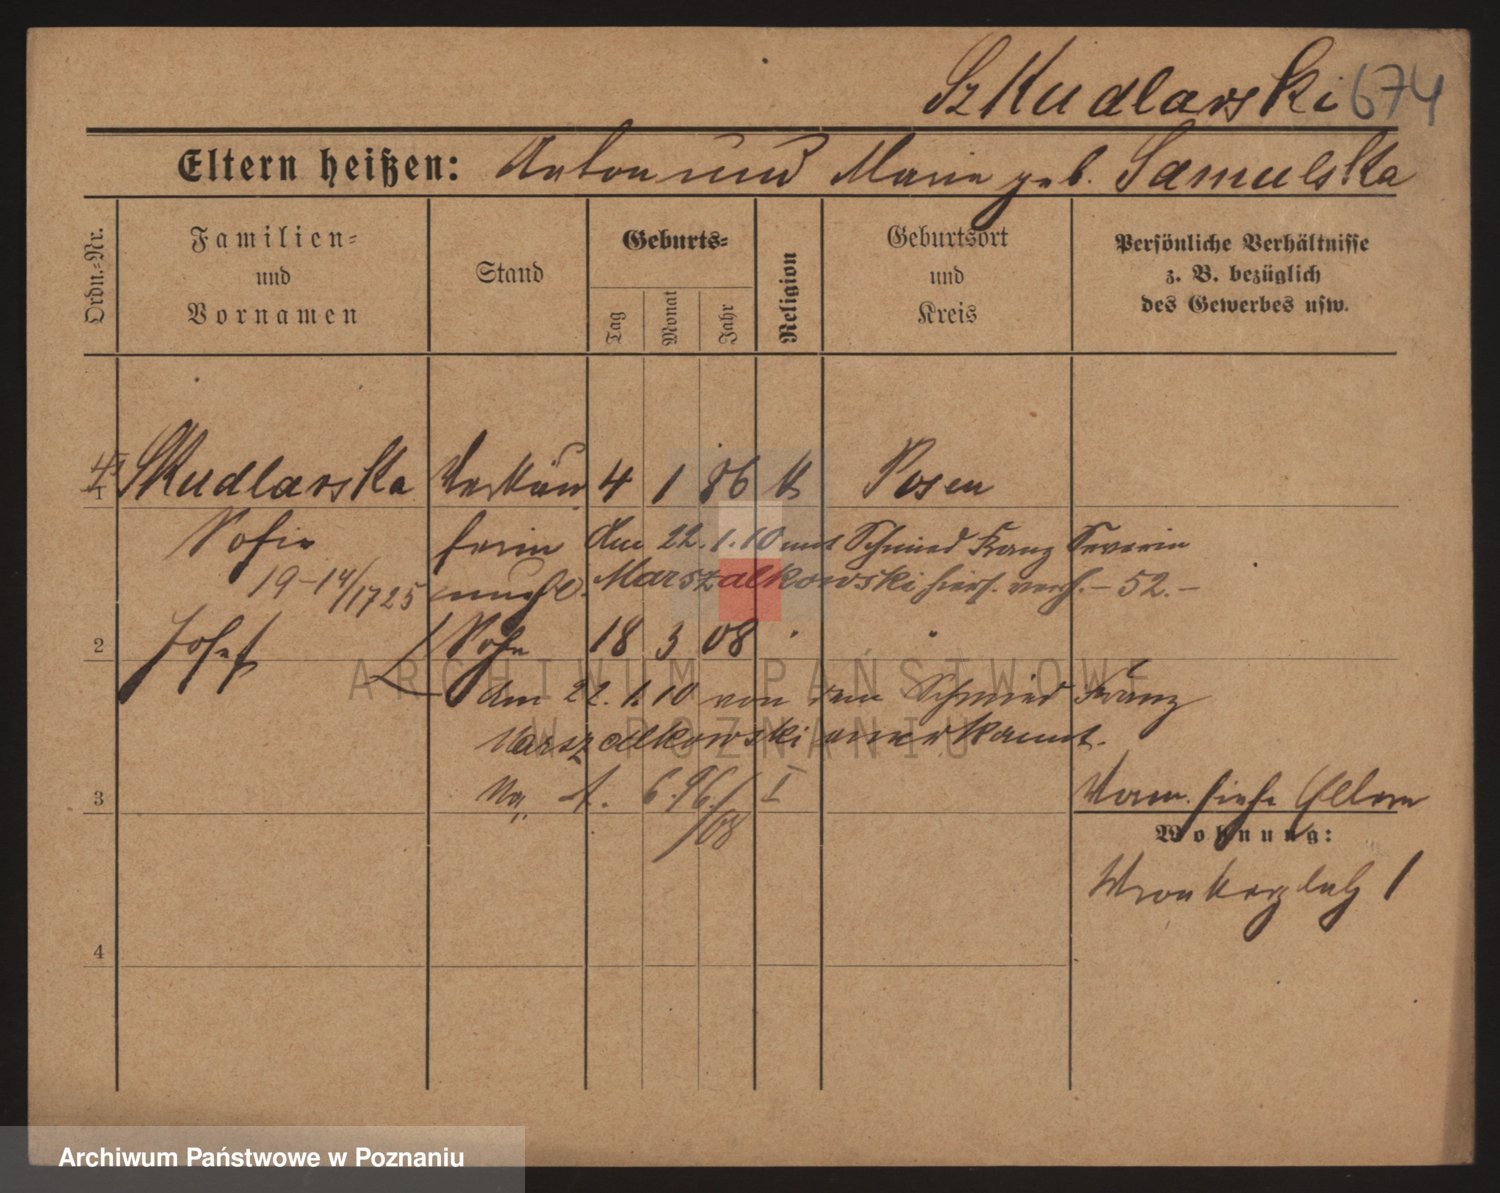 Szkudlarski 674
Eltern heißen: Anton und Marie geb. Samulska
Ordn.-Nr.
Familien-
und
Vornamen
Stand
Geburts-
Tag
Monat
Jahr
Religion
Geburtsort
und
Kreis
Persönliche Verhältnisse
z. B. bezüglich
des Gewerbes usw.
Skudlarska Verkäu 4 1 86 k Posen
Sofie ferin Am 22.1.10 mit Schmied Franz Severin
19-14/1725 unehl. Marszalkowski hies. verh. - 52. -
2 Josef Sohn 18 3 08 " "
Am 22.1.10 von dem Schmied Franz
Marszalkowski anerkannt.
3 6.96./08 I
Vorm. siehe Eltern
Wohnung:
Wronkerplatz 1
4
ARCHIWUM PAŃSTWOWE
W POZNANIU
Archiwum Państwowe w Poznaniu